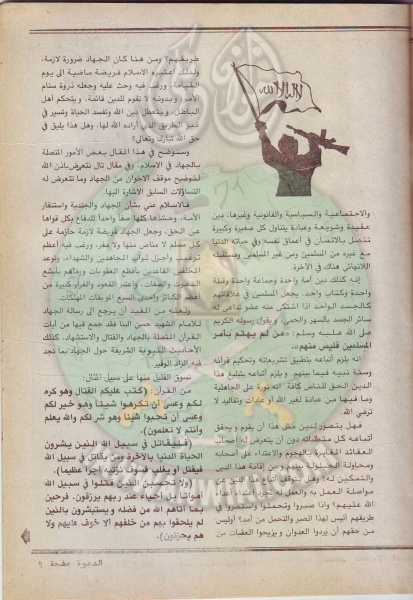 والاجتماعية والسياسية والقانونية وغيرها، دين
عقيدة وشريعة وعبادة يتناول كل صغيرة وكبيرة
تتصل بالانسان في أعماق نفسه وفي حياته الدنيا
مع غيره من المسلمين ومن غير المسلمين ومستقبله
اللانهائي هناك في الآخرة.
إنه كذلك دين أمة واحدة وجماعة واحدة وقبلة
واحدة وكتاب واحد، يجعل المسلمين في علاقاتهم
كالجسد الواحد اذا اشتكى منه عضو تداعى له
سائر الجسد بالسهر والحمى، أو يقول رسوله الكريم
صلى الله عليه وسلم: «من لم يهتم بأمر
المسلمين فليس منهم».
إنه يلزم أتباعه بتطبيق تشريعاته وتحكيم قرآنه
وسنة نبيه فيما بينهم. ويلزم أتباعه بتبليغ هذا
الدين الحق للناس كافة. انه ثورة على الجاهلية
وما فيها من عبادة لغير الله أو عادات وتقاليد لا
ترضي الله.
فهل يتصور لدين مثل هذا أن يقوم ويحقق
أتباعه كل متطلباته دون أن يتعرض له أصحاب
العقائد الأخرى بالهجوم والاعتداء على أصحابه
ومحاولة الحيلولة بينهم وبين إقامة هذا الدين
والتمكين له؟ وهل يتوقف أتباع هذا الدين عن
مواصلة العمل به والعمل له لمجرد اعتداء أعداء
الله عليهم؟ واذا صبروا وتحملوا واستمروا في
طريقهم أليس لهذا الصبر والتحمل من أمد؟ أوليس
من حقهم أن يردوا العدوان و يزيحوا العقبات من
طريقهم؟ ومن هنا كان الجهاد ضرورة لازمة،
ولذلك أعتبره الاسلام فريضة ماضية الى يوم
القيامة، ورغب فيه وحث عليه وجعله ذروة سنام
الأمر، وبدونه لا تقوم للدين قائمة، ويتحكم أهل
الباطل، ويتعطل دين الله وتفسد الحياة وتسير في
غير الطريق الذي أراده الله لها، وهل هذا يليق في
حق الله تبارك وتعالى؟
وسنوضح في هذا المقال بعض الأمور المتصلة
بالجهاد في الاسلام، وفي مقال تال نتعرض باذن الله
لتوضيح موقف الاخوان من الجهاد وما نتعرض له
التساؤلات السابق الاشارة اليها.
فالاسلام عني بشأن الجهاد والجندية واستنفار
الأمة، وحشدها كلها صفاً واحداً للدفاع بكل قواها
عن الحق، وجعل الجهاد فريضة لازمة حازمة على
كل مسلم لا مناص منها ولا مفر، ورغب فيه أعظم
ترغيب وأجزل ثواب المجاهدين والشهداء، وتوعد
المخلفين القاعدين بأفظع العقوبات ورماهم بأبشع
النعوت والصفات، واعتبر القعود والفرار كبيرة من
أعظم الكبائر وإحدى السبع الموبقات المهلكات.
ولعله من المفيد أن يرجع الى رسالة الجهاد
للامام الشهيد حسن البنا فقد جمع فيها من آيات
القرآن المتصلة بالجهاد والقتال والاستشهاد، كذلك
الأحاديث النبوية الشريفة حول الجهاد بما تجد
فيه الزاد الوفير.
نسوق القليل منها على سبيل المثال:
من القرآن: (كتب عليكم القتال وهو كره
لكم وعسى أن تكرهوا شيئا وهو خير لكم
وعسى أن تحبوا شيئا وهو شر لكم والله يعلم
وأنتم لا تعلمون).
(فليقاتل في سبيل الله الذين يشرون
الحياة الدنيا بالآخرة ومن يقاتل في سبيل الله
فيقتل أو يغلب فسوف نؤتيه أجرا عظيما).
(ولا تحسبن الذين قتلوا في سبيل الله
أمواتا بل أحياء عند ربهم يرزقون. فرحين
بما آتاهم الله من فضله و يستبشرون بالذين
لم يلحقوا بهم من خلفهم ألا خوف عليهم ولا
هم يحزنون).
الدعوة صفحة ٩